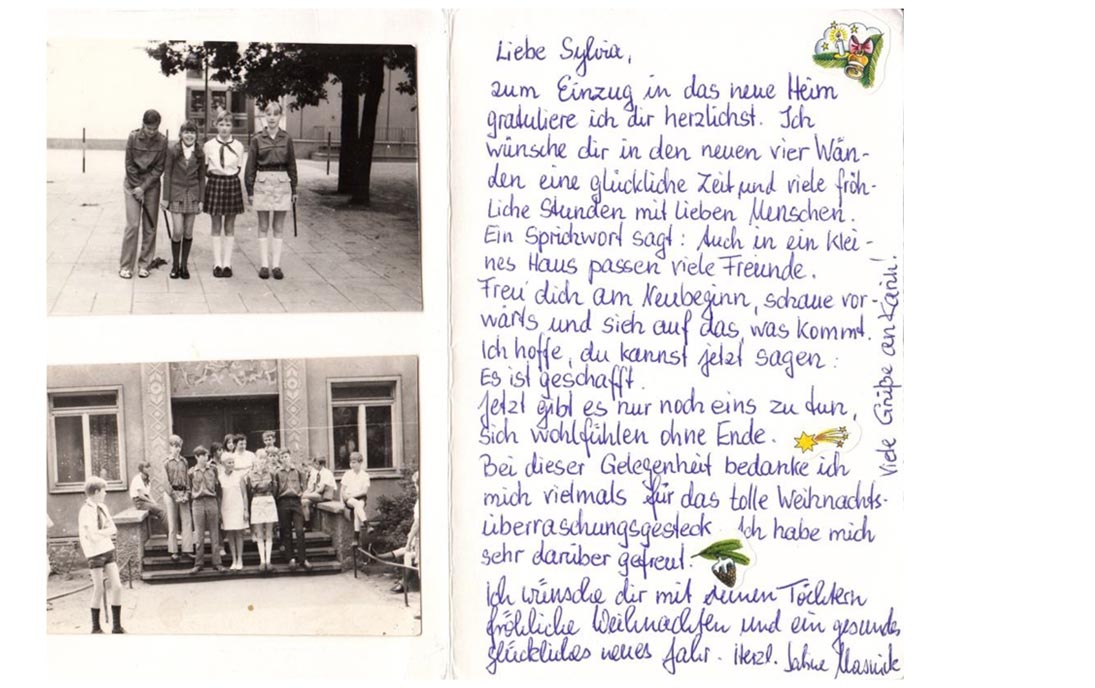 Liebe Sylvia,
zum Einzug in das neue Heim
gratuliere ich dir herzlichst. Ich
wünsche dir in den neuen vier Wän-
den eine glückliche Zeit und viele fröh-
liche Stunden mit lieben Menschen.
Ein Sprichwort sagt: Auch in ein klei-
nes Haus passen viele Freunde.
Freu' dich am Neubeginn, schaue vor-
wärts und sieh auf das, was kommt.
Ich hoffe, du kannst jetzt sagen:
Es ist geschafft.
Jetzt gibt es nur noch eins zu tun,
sich wohlfühlen ohne Ende.
Bei dieser Gelegenheit bedanke ich
mich vielmals für das tolle Weihnachts-
überraschungsgesteck. Ich habe mich
sehr darüber gefreut.
Ich wünsche dir mit deinen Töchtern
fröhliche Weihnachten und ein gesundes
glückliches neues Jahr. Herzl. Sabine
Viele Grüße an Karin!